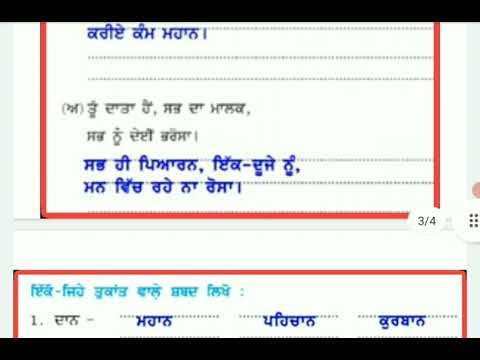 ਕਰੀਏ ਕੰਮ ਮਹਾਨ।
(ਅ) ਤੂੰ ਦਾਤਾ ਹੈਂ, ਸਭ ਦਾ ਮਾਲਕ,
ਸਭ ਨੂੰ ਦੇਈਂ ਭਰੋਸਾ।
ਸਭ ਹੀ ਪਿਆਰਨ, ਇੱਕ-ਦੂਜੇ ਨੂੰ,
ਮਨ ਵਿੱਚ ਰਹੇ ਨਾ ਰੋਸਾ।
3/4
ਇੱਕੋ-ਜਿਹੇ ਤੁਕਾਂਤ ਵਾਲ਼ੇ ਸ਼ਬਦ ਲਿਖੋ :
1. ਦਾਨ - ਮਹਾਨ ਪਹਿਚਾਨ ਕੁਰਬਾਨ